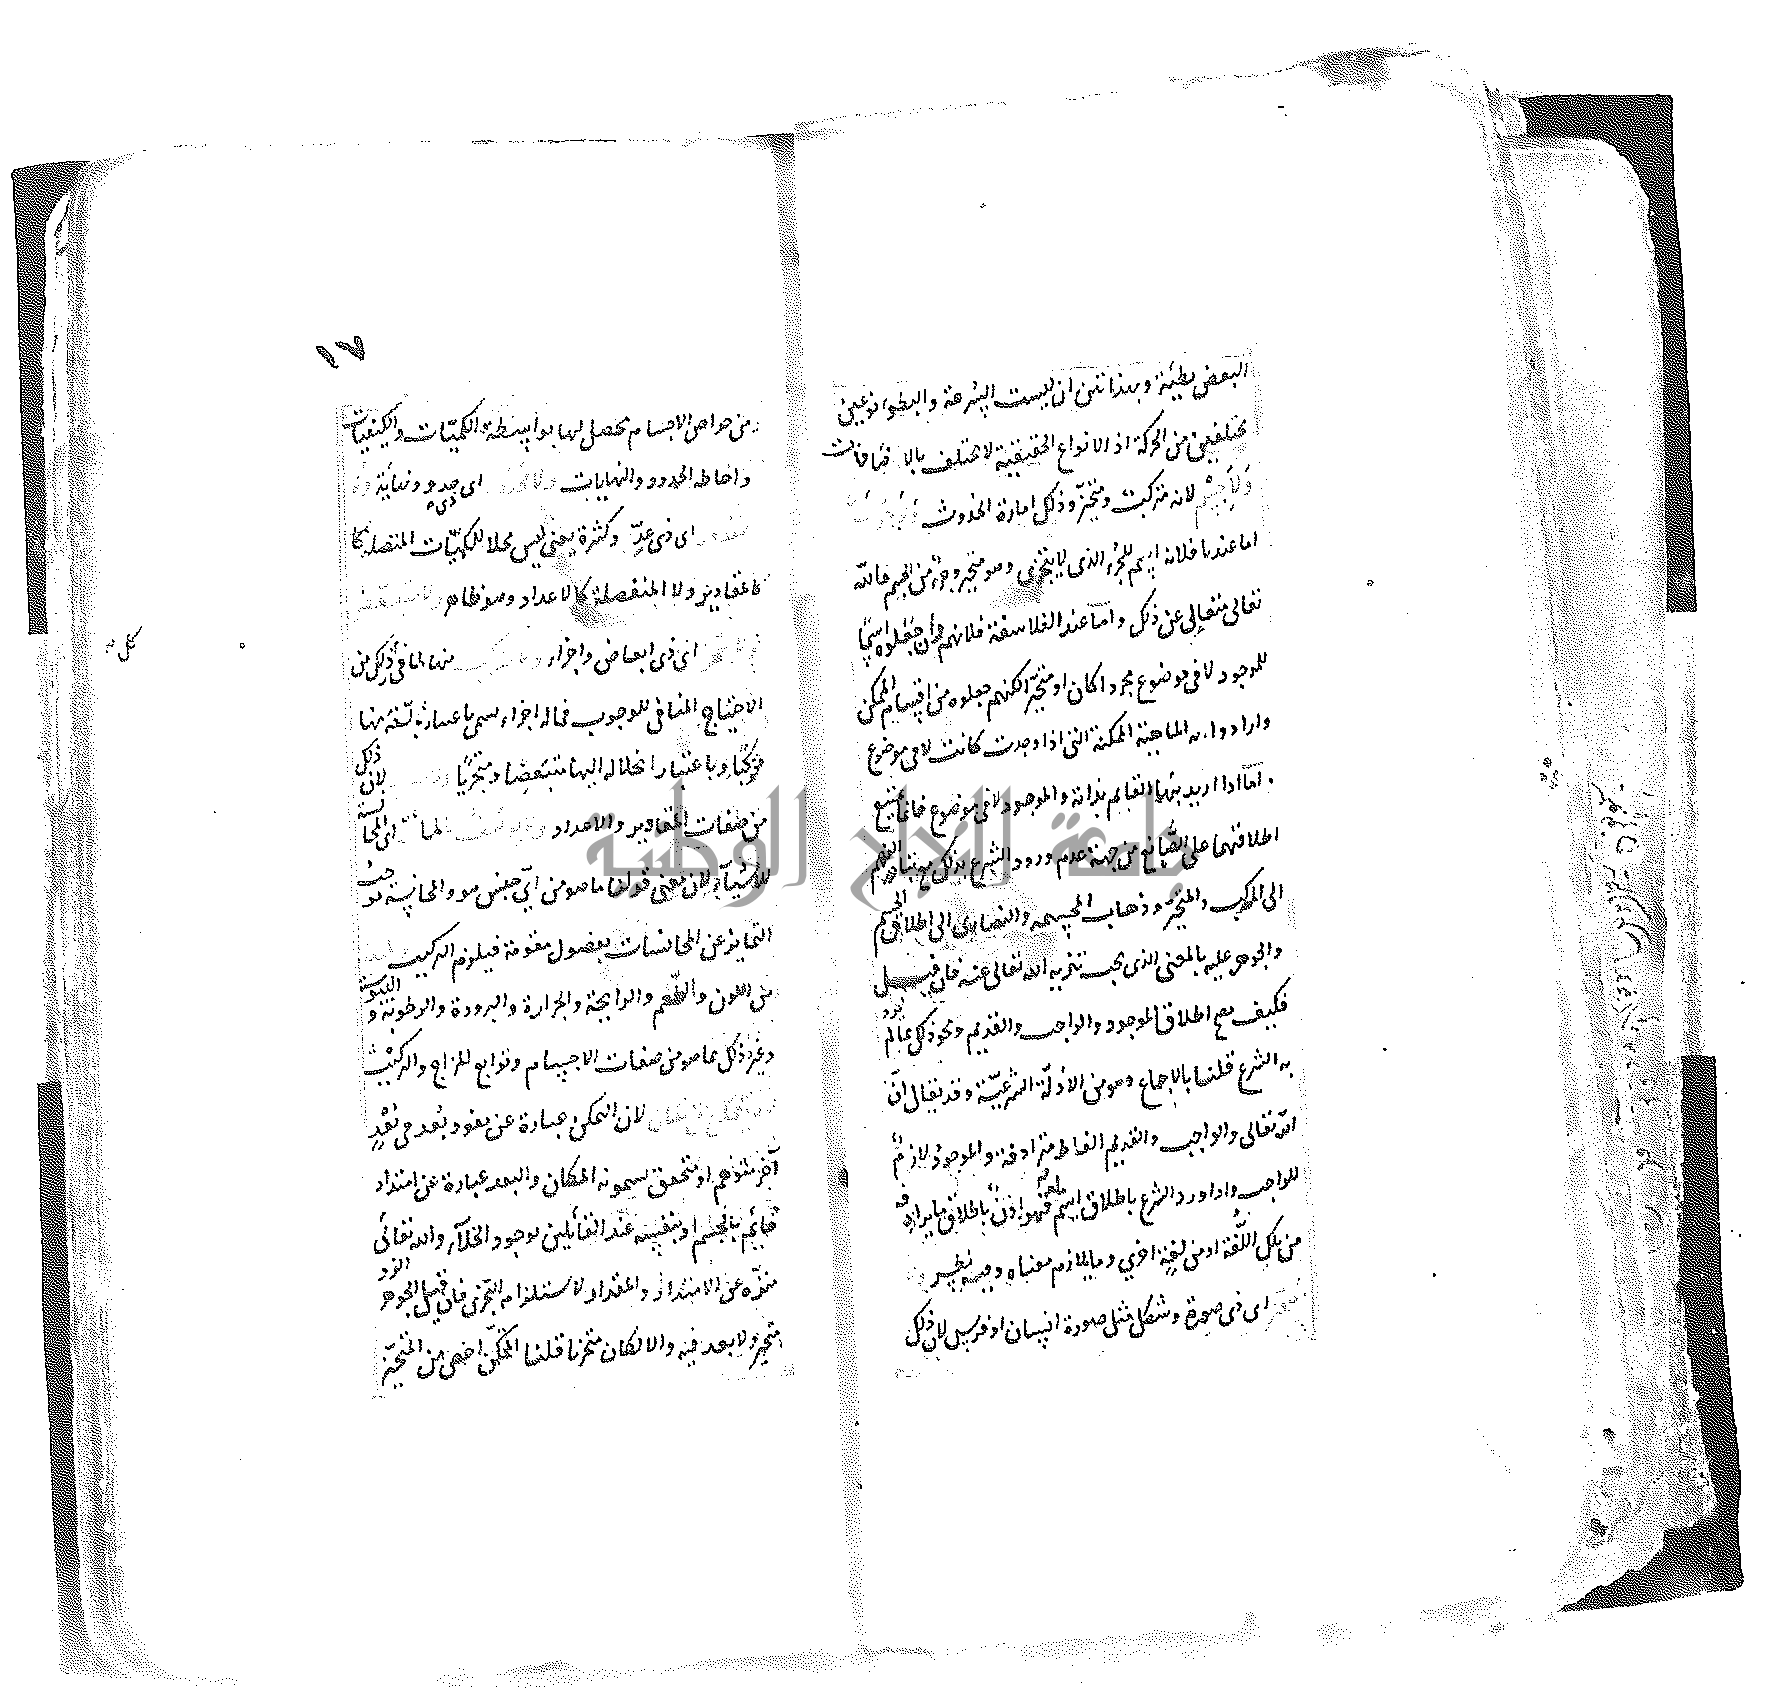 البعض بطيئة وبهذا تبين ان ليست السرعة والبطوء نوعين
مختلفين من الحركة اذ الانواع الحقيقية لا تختلف بالاضافات
ولا جسم لانه متركب ومتحيز وذلك امارة الحدوث
اما عندنا فلانه اسم للجزء الذى لا يتجزى وهو متحيز وجزء من الجسم والله
تعالى متعالى عن ذلك واما عند الفلاسفة فلانهم وان جعلوه اسما
للموجود لا فى موضوع مجردا كان او متحيزا لكنهم جعلوه من اقسام الممكن
وارادوا به الماهية الممكنة التى اذا وجدت كانت لا فى موضوع
اما اذا اريد بهما القايم بذاته والموجود لا فى موضوع فانما يمتنع
اطلاقهما على الصانع من جهة عدم ورود الشرع بذلك مع تبادر الفهم
الى المركب والمتحيز وذهاب المجسمة والنصارى الى اطلاق الجسم
والجوهر عليه بالمعنى الذى يجب تنزيه الله تعالى عنه فان قيل
فكيف صح اطلاق الموجود والواجب والقديم ونحو ذلك مما لم يرد
به الشرع قلنا بالاجماع وهو من الادلة الشرعية وقد يقال ان
الله تعالى والواجب والقديم الفاظ مترادفة والموجود لازم
للواجب واذا ورد الشرع باطلاق اسم بلغة فهو اذن باطلاق ما يرادفه
من تلك اللغة او من لغة اخرى وما يلازم معناه وفيه نظر
اى ذى صورة وشكل مثل صورة انسان او فرس لان ذلك
١٧
من خواص الاجسام تحصل لها بواسطة الكميات والكيفيات
واحاطة الحدود والنهايات ولا اى ذى حد ونهاية
اى ذى عدد وكثرة يعنى ليس محلا للكميات المتصلة
كالمقادير ولا المنفصلة كالاعداد وهو ظاهر
اى ذى ابعاض واجزاء منها لما فى كل ذلك من
الاحتياج المنافى للوجوب فما له اجزاء يسمى باعتبار تالفه منها
متركبا وباعتبار انحلاله اليها متبعضا ومتجزيا لان ذلك
من صفات المقادير والاعداد اى المجانسة
للاشياء لان معنى قولنا ما هو من اى جنس هو والمجانسة توجب
التمايز عن المجانسات بفصول مقومة فيلزم التركيب
من اللون والطعم والرايحة والحرارة والبرودة والرطوبة واليبوسة
وغير ذلك مما هو من صفات الاجسام وتوابع المزاج والتركيب
لان التمكن عبارة عن نفوذ بعد فى بعد
آخر متوهم او متحقق يسمونه المكان والبعد عبارة عن امتداد
قائم بالجسم او بنفسه عند القائلين بوجود الخلآء والله تعالى
منزه عن الامتداد والمقدار لاستلزامه التجزى فان قيل الجوهر الفرد
متحيز ولا بعد فيه والا لكان متجزيا قلنا الممكن اخص من المتحيز